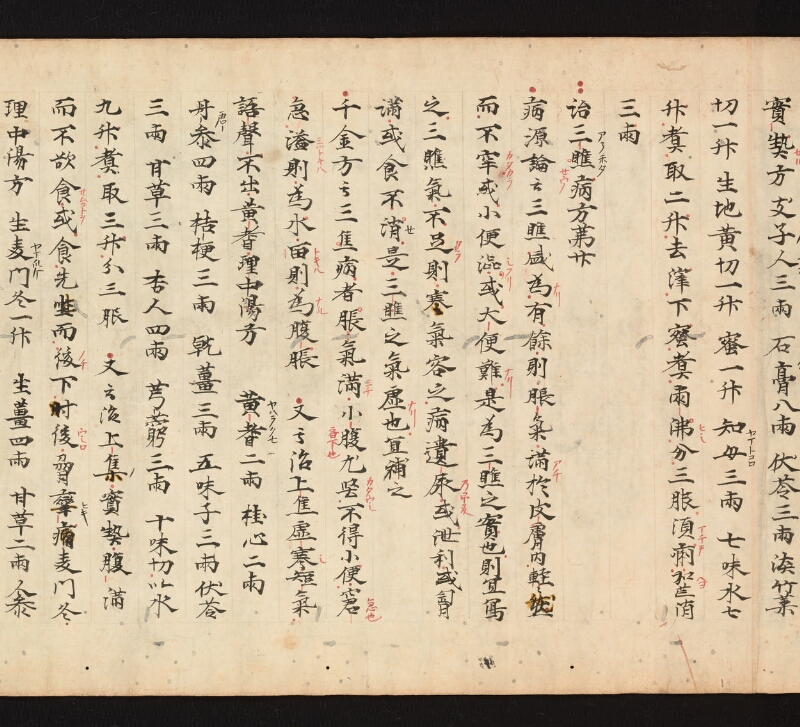 實熱方 支子人三兩 石膏八兩 伏苓三兩 淡竹葉
切一升 生地黃切一升 蜜一升 知母三兩 七味水七
升煑取二升去滓下蜜煑兩沸分三服須痢加芒消
三兩
治三膲病方第廿
病源論云三膲咸為有餘則脹氣滿於皮膚內輕輕然
而不牢或小便澁或大便難是為三膲之實也則宜寫
之三膲氣不足則寒氣客之病遺尿或泄利或胷
滿或食不消是三膲之氣虛也宜補之
千金方云三焦病者脹氣滿小腹尤堅不得小便窘
急溢則為水留則為腹脹 又云治上焦虛寒短氣
語聲不出黃耆理中湯方 黃耆二兩 桂心二兩
丹參四兩 桔梗三兩 乾薑三兩 五味子三兩 伏苓
三兩 甘草三兩 杏人四兩 芎藭三兩 十味切以水
九升煑取三升分三服 又云治上集實熱腹滿
而不欲食或食先吐而後下時後胷攣痛麦門冬
理中湯方 生麦門冬一升 生薑四兩 甘草二兩 人參